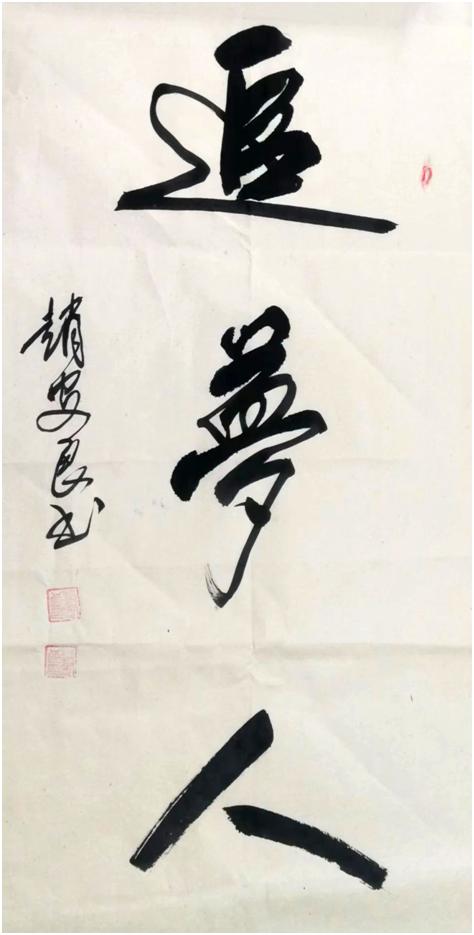 追夢人
趙安良书